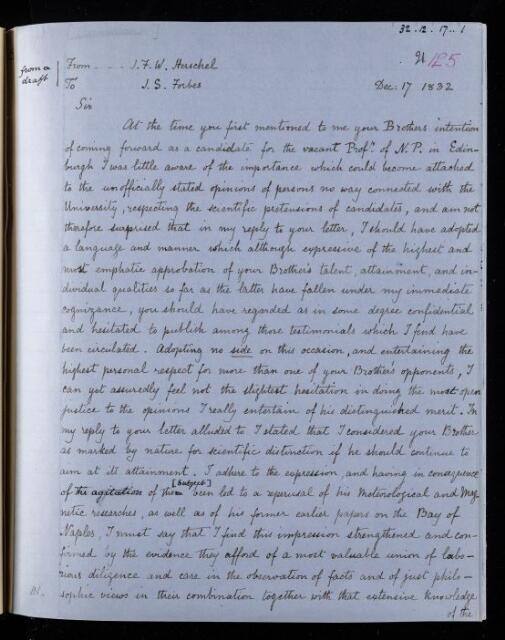 32.12.17..1
from a
draft
125
From - - - J.F.W. Herschel
To J.S. Forbes Dec: 17 1832
Sir
At the time you first mentioned to me your Brothers intention
of coming forward as a candidate for the vacant Profr. of N.P. in Edin-
burgh I was little aware of the importance which could become attached
to the unofficially stated opinions of persons no way connected with the
University, respecting the scientific pretensions of candidates, and am not
therefore surprised that in my reply to your letter, I should have adopted
a language and manner which although expressive of the highest and
most emphatic approbation of your Brother's talent, attainment, and in-
dividual qualities so far as the latter have fallen under my immediate
cognizance, you should have regarded as in some degree confidential,
and hesitated to publish among those testimonials which I find have
been circulated. Adopting no side on this occasion, and entertaining the
highest personal respect for more than one of your Brother's opponents, I
can yet assuredly feel not the slightest hesitation in doing the most open
justice to the opinions I really entertain of his distinguished merit. In
my reply to your letter alluded to I stated that I considered your Brother
as marked by nature for scientific distinction if he should continue to
aim at its attainment. I adhere to the expression, and having in consequence
[subject]
of the agitation of this been led to a reperusal of his Meteorological and Mag
netic researches, as well as of his former earlier papers on the Bay of
Naples, I must say that I find this impression strengthened and con-
firmed by the evidence they afford of a most valuable union of labo-
rious diligence and care in the observation of facts and of just philo-
sophic views in their combination together with that extensive knowledge
of the